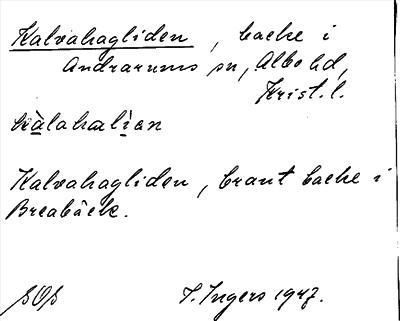 Kalvahagliden, backe i
Andrarums sn, Albo hd,
Krist. l.
kàlahalian
Kalvahagliden, brant backe i
Breabäck.
I. Ingers 1947.